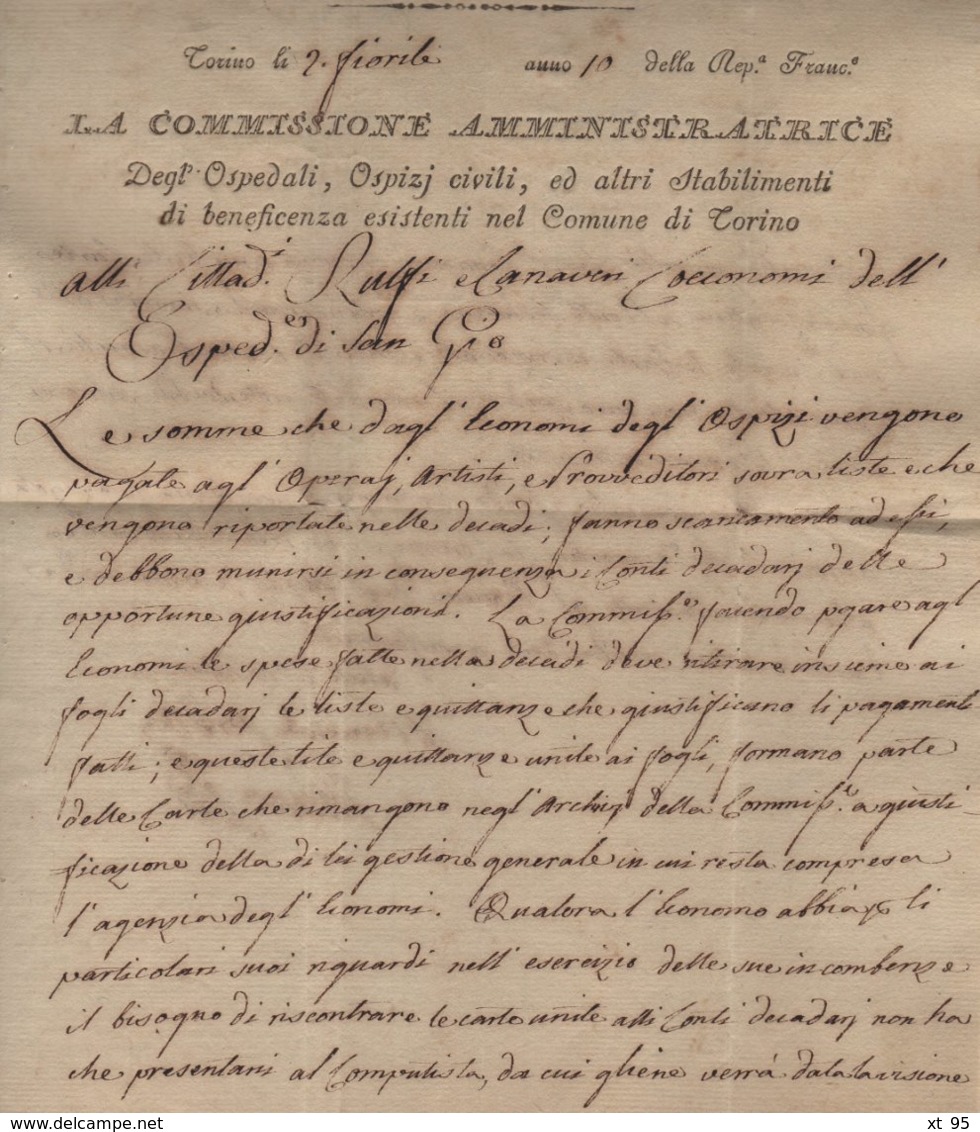 Torino li 2. fiorile anno 10 della Rep.ª Franc.ª
LA COMMISSIONE AMMINISTRATRICE
Degl' Ospedali, Ospizj civili, ed altri Stabilimenti
di beneficenza esistenti nel Comune di Torino
alli Cittad.i Ruffi e Canaveri Coeconomi dell'
di San Gio
Le somme che dagl' Economi degl' Ospizj vengono
pagate agl' Operaj, Artisti, e Provveditori sovra liste e che
vengono riportate nelle decadi; fanno scaricamento ad essi,
e debbono munirsi in conseguenza i Conti decadarj delle
opportune giustificazioni. La Commiss.e facendo pgare agl'
Economi le spese fatte nella decadi deve ritirare insieme ai
fogli decadarj le liste e quittanze che giustificano li pagamenti
fatti; e queste liste e quittanze unite ai fogli, formano parte
delle Carte che rimangono negl' Archivj della Commiss.e a giusti-
ficazione della di lei gestione generale in cui resta compresa
l'agenzia degl' Economi. Qualora l'Economo abbia p li
particolari suoi riguardi nell' esercizio delle sue incombenze
il bisogno di riscontrare le carte unite alli Conti decadarj non ha
che presentarsi al Computista, da cui gliene verrà data la visione
xt 95
www.delcampe.net